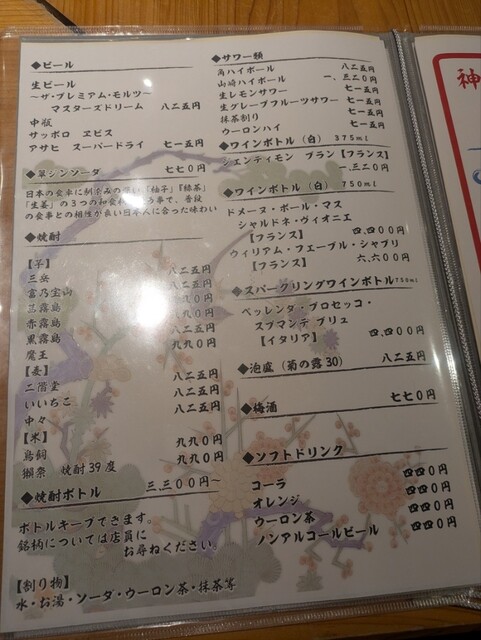 ◆ビール
生ビール
~ザ・プレミアム・モルツ~
マスターズドリーム 八二五円
中瓶
サッポロ ヱビス
アサヒ スーパードライ 七一五円
◆翠ジンソーダ 七七〇円
日本の食卓に馴染みの深い「柚子」「緑茶」
「生姜」の3つの和食材
の食事との相性が良い日本人に合った味わい
◆焼酎
【芋】
三岳 八二五円
富乃宝山 八二五円
赤霧島
黒霧島 八二五円
魔王 九九〇円
【麦】
二階堂 八二五円
いいちこ 八二五円
中々 八二五円
【米】
鳥飼 九九〇円
獺祭 焼酎39度 九九〇円
◆焼酎ボトル 三、三〇〇円~
ボトルキープできます。
銘柄については店員に
お尋ねください。
【割り物】
水・お湯・ソーダ・ウーロン茶・抹茶等
◆サワー類
角ハイボール 八二五円
山崎ハイボール 一、三二〇円
生レモンサワー 七一五円
生グレープフルーツサワー 七一五円
抹茶割り 七一五円
ウーロンハイ 七一五円
◆ワインボトル(白) 375ml
ジェンティモン ブラン【フランス】
一、三二〇円
◆ワインボトル(白) 750ml
ドメーヌ・ポール・マス
シャルドネ・ヴィオニエ
【フランス】 四、四〇〇円
ウィリアム・フェーブル・シャブリ
【フランス】 六、六〇〇円
◆スパークリングワインボトル750ml
ベッレンダ・プロセッコ・
スプマンテ ブリュ
【イタリア】 四、四〇〇円
◆泡盛 (菊の露30) 八二五円
◆梅酒 七七〇円
◆ソフトドリンク
コーラ 四四〇円
オレンジ 四四〇円
ウーロン茶 四四〇円
ノンアルコールビール 四四〇円
神